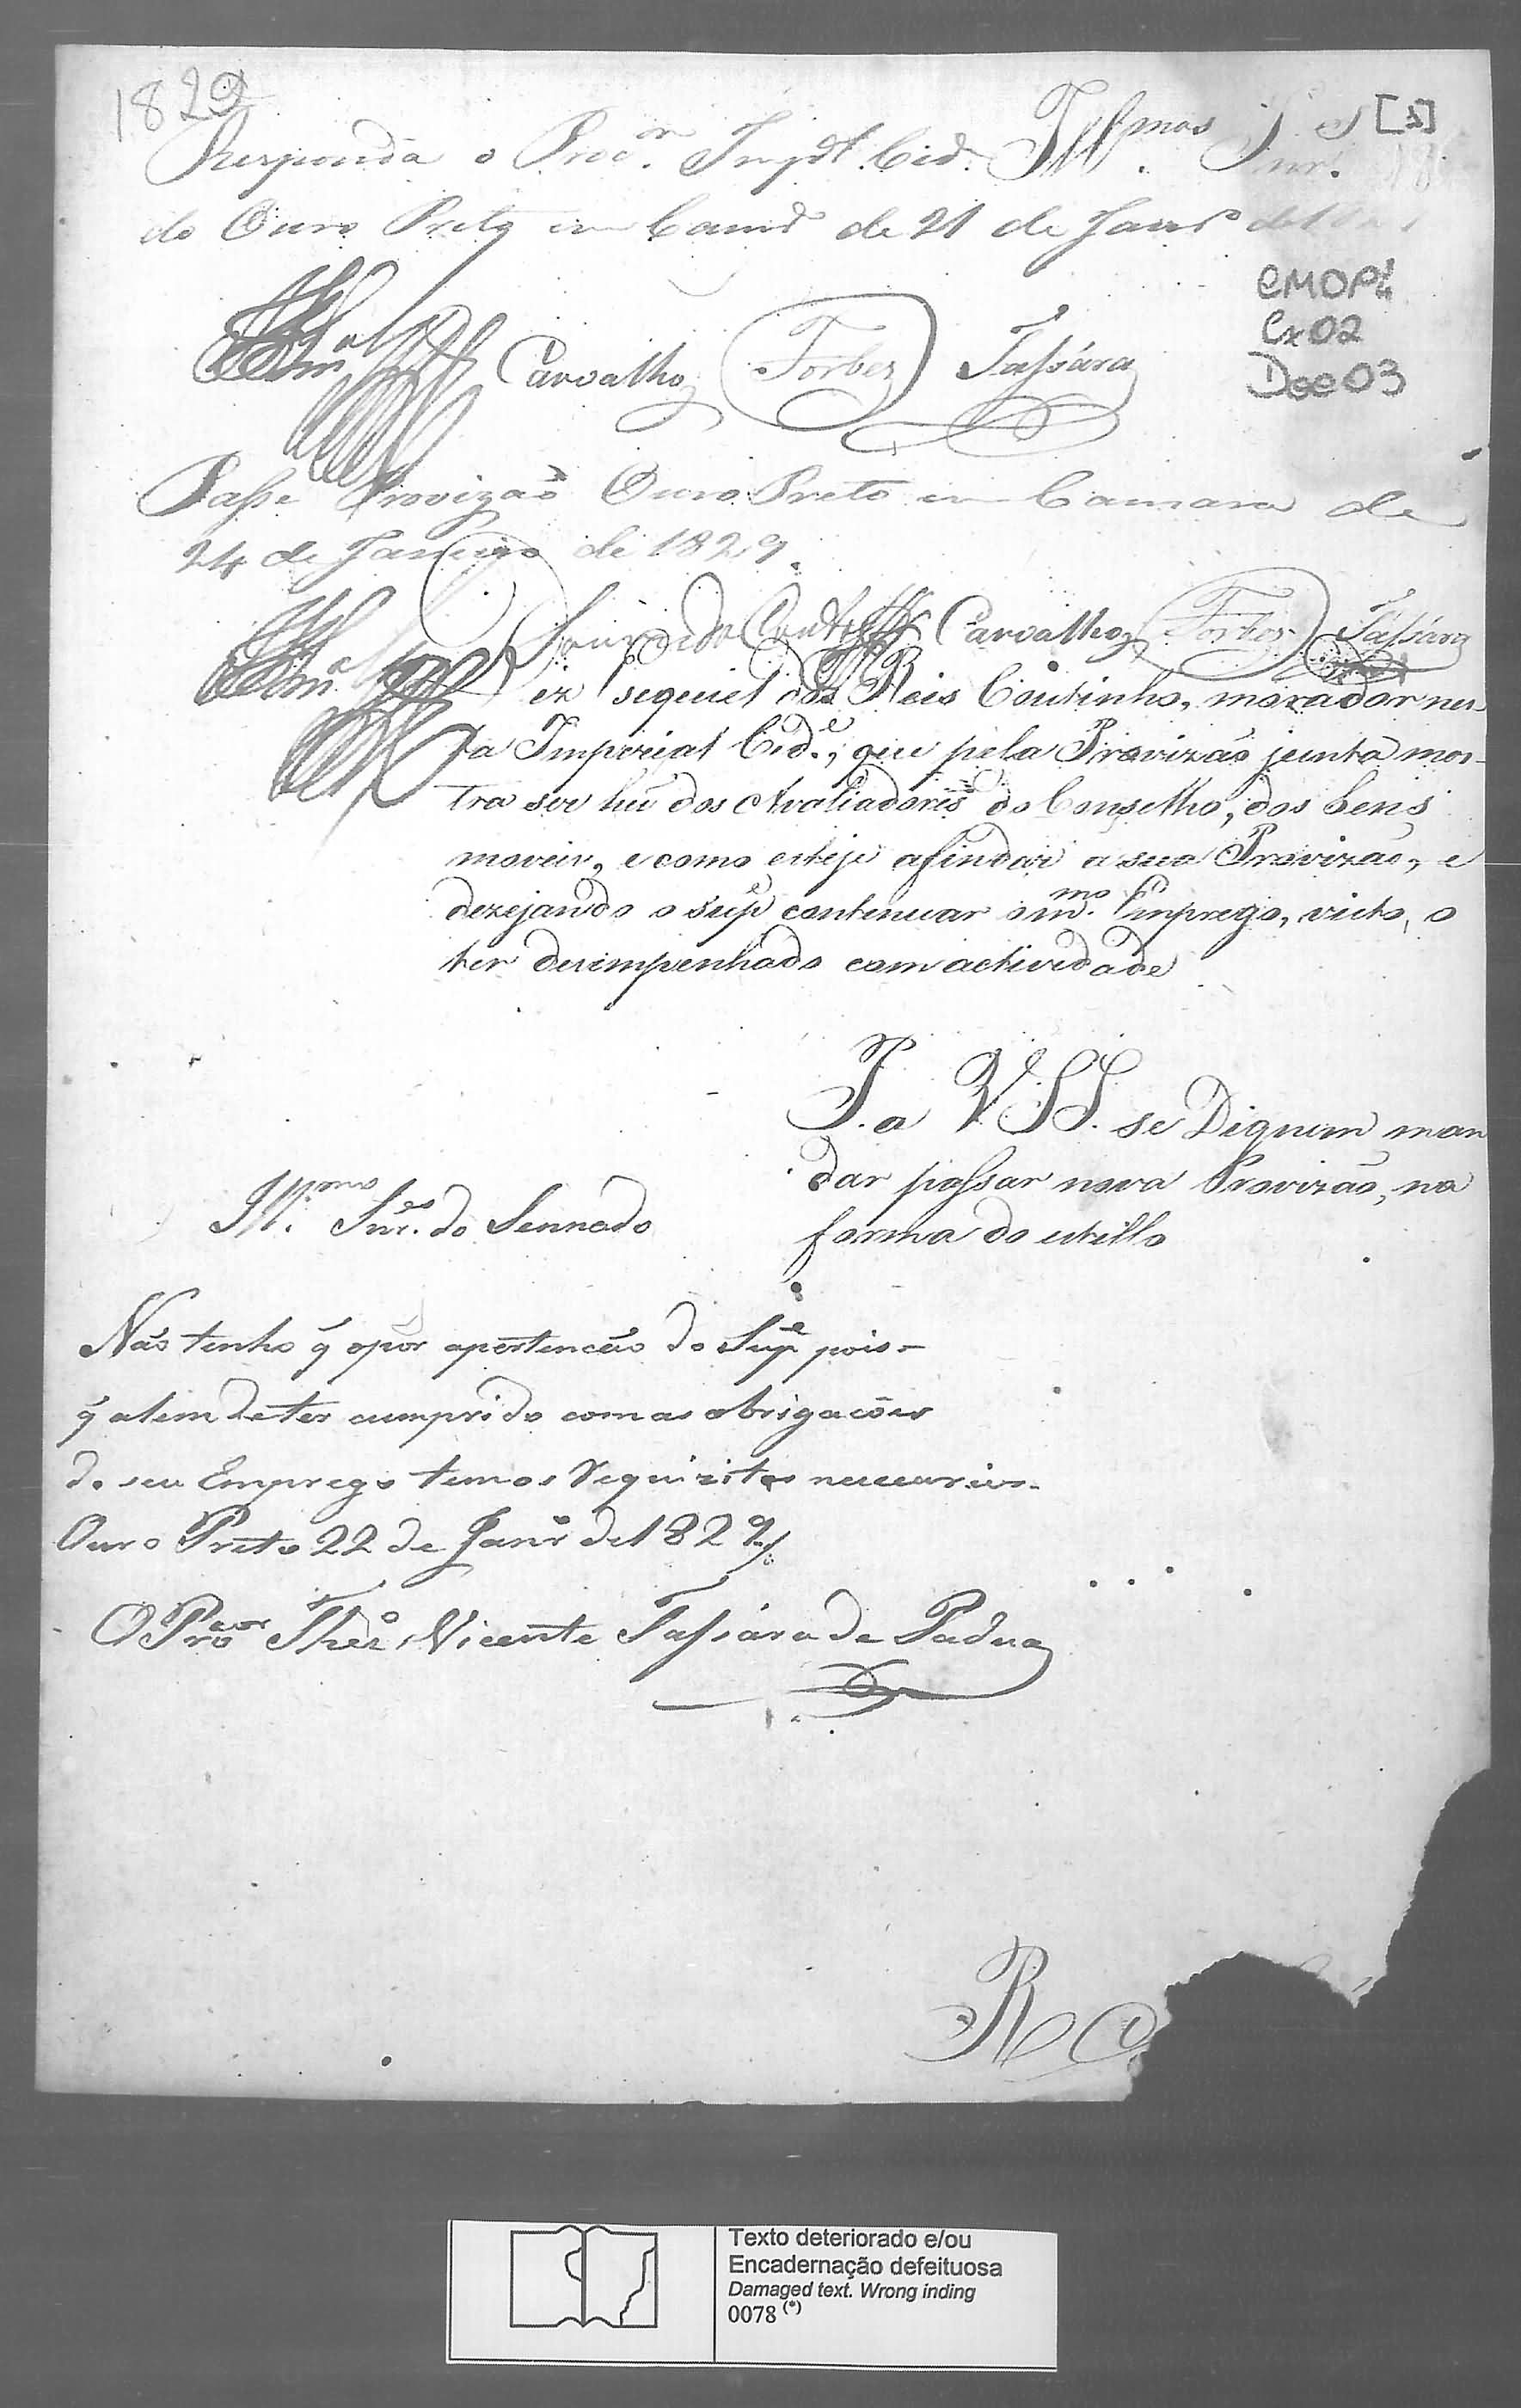 1829
[1]
Responda o Proc.or Imp.l Cid. Ill.mos Snr.es
do Ouro Preto em Cam.ª de 21 de Janr.º de
CMOP4
Cx02
Doc03
Carvalho Forbes Tassára
Passe Provizaõ Ouro Preto em Camara de
24 de Janeiro de 1829.
Carvalho Forbes Tassára
Diz Esequiel dos Reis Coutinho, morador nes-
ta Imperial Cid.e, que pela Provizaõ junta mos-
tra ser hũ dos Avaliadores do Conselho, dos bens
moveis, e como esteje afindar a sua Provizaõ, e
dezejando o Sup.e continuar om.mo Emprego, visto, o
ter desimpenhado com actividade
P. a V.SS. se Dignem man
dar passar nova Provizaõ, na
forma do estillo
Ill.mos Snr.es do Sennado
Naõ tenho q̃ opôr apertenceaõ do Sup.e pois-
q̃ alem de ter cumprido com as obrigacões
do seu Emprego tem os requizitos necessarios.
Ouro Preto 22 de Janr.o de 1829
O Procor Thez.o Vicente Tassára de Padua
R
Texto deteriorado e/ou
Encadernação defeituosa
Damaged text. Wrong inding
0078 (*)